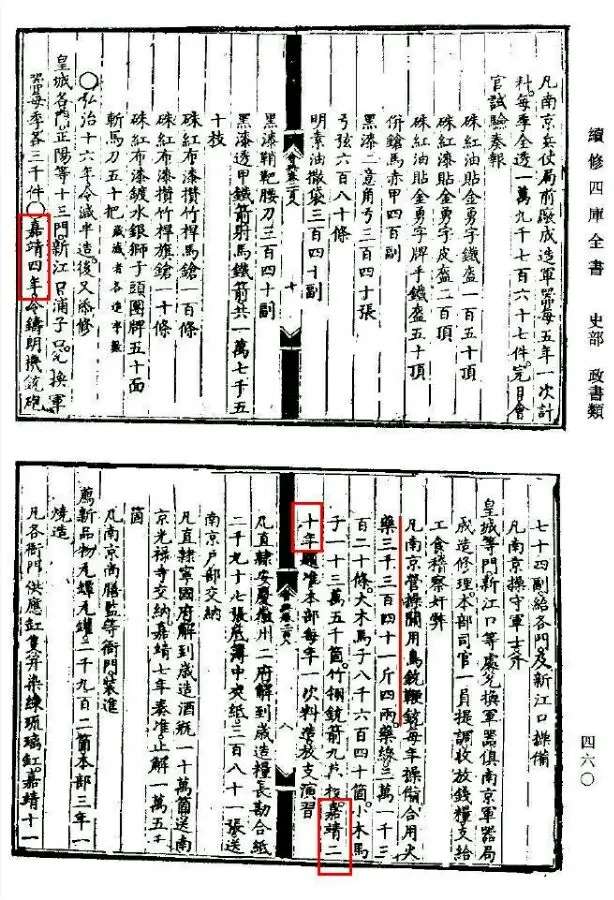 續修四庫全書　史部　政書類
凡南京兵仗局前廠成造軍器每五年一次計
料每季全透一萬九千七百六十七件完日會
官試驗奏報
硃紅油貼金勇字鐵盔五十頂
硃紅漆貼金勇字皮盔二百頂
硃紅油貼金勇字牌手鐵盔五十頂
併鎗馬赤甲四百副
黑漆二意角弓三百四十張
弓弦六百八十條
明素油撒袋三百四十副
黑漆鞘靶腰刀三百四十副
黑漆透甲鐵箭射馬鐵箭共一萬七千五
十枝
硃紅布漆攢竹桿馬鎗一百條
硃紅布漆攢竹桿旗鎗一十條
硃紅布漆鍍水銀獅子頭團牌五十面
斬馬刀五十把
皇城各門正陽等十三門新江口浦子口兌換軍
器每季各三千件〇嘉靖四年令鑄朗機銃砲
〇弘治十六年令減半造後又添修
四六〇
七十四副給各門及新江口操備
凡南京操守軍士外
皇城等門新江口等處兌換軍器俱南京軍器局
成造修理本部司官一員提調收放錢糧支給
工食稽察奸弊
凡南京營操關用鳥銃鞭銃每年操備合用火
藥三千三百四十一斤四兩藥線三萬一千三
百二十條大木馬子八千六百四十箇小木馬
子一十三萬五千箇竹翎銃箭九千枝嘉靖二
十年題准本部每年一次料造放支演習
凡直隸安慶徽州二府解到歲造糧長勘合紙
二千九十七張底簿中夾紙三百八十一張送
南京戶部交納
凡直隸寧國府解到歲造酒瓶一十萬箇送南
京光祿寺交納嘉靖七年奏准止解一萬五千
箇
凡南京尚膳監等衙門裝進
薦新品物瓦罈瓦罐二千九百二箇本部三年一
燒造
凡各衙門供應缸隻并染練琉璃缸嘉靖十一